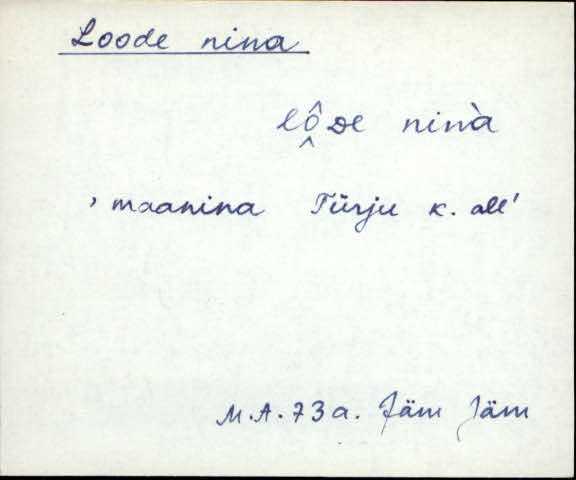 Loode nina
lô̭ᴅe ninà
'maanina Türju k. all'
M.A. 73a. Jäm Jäm